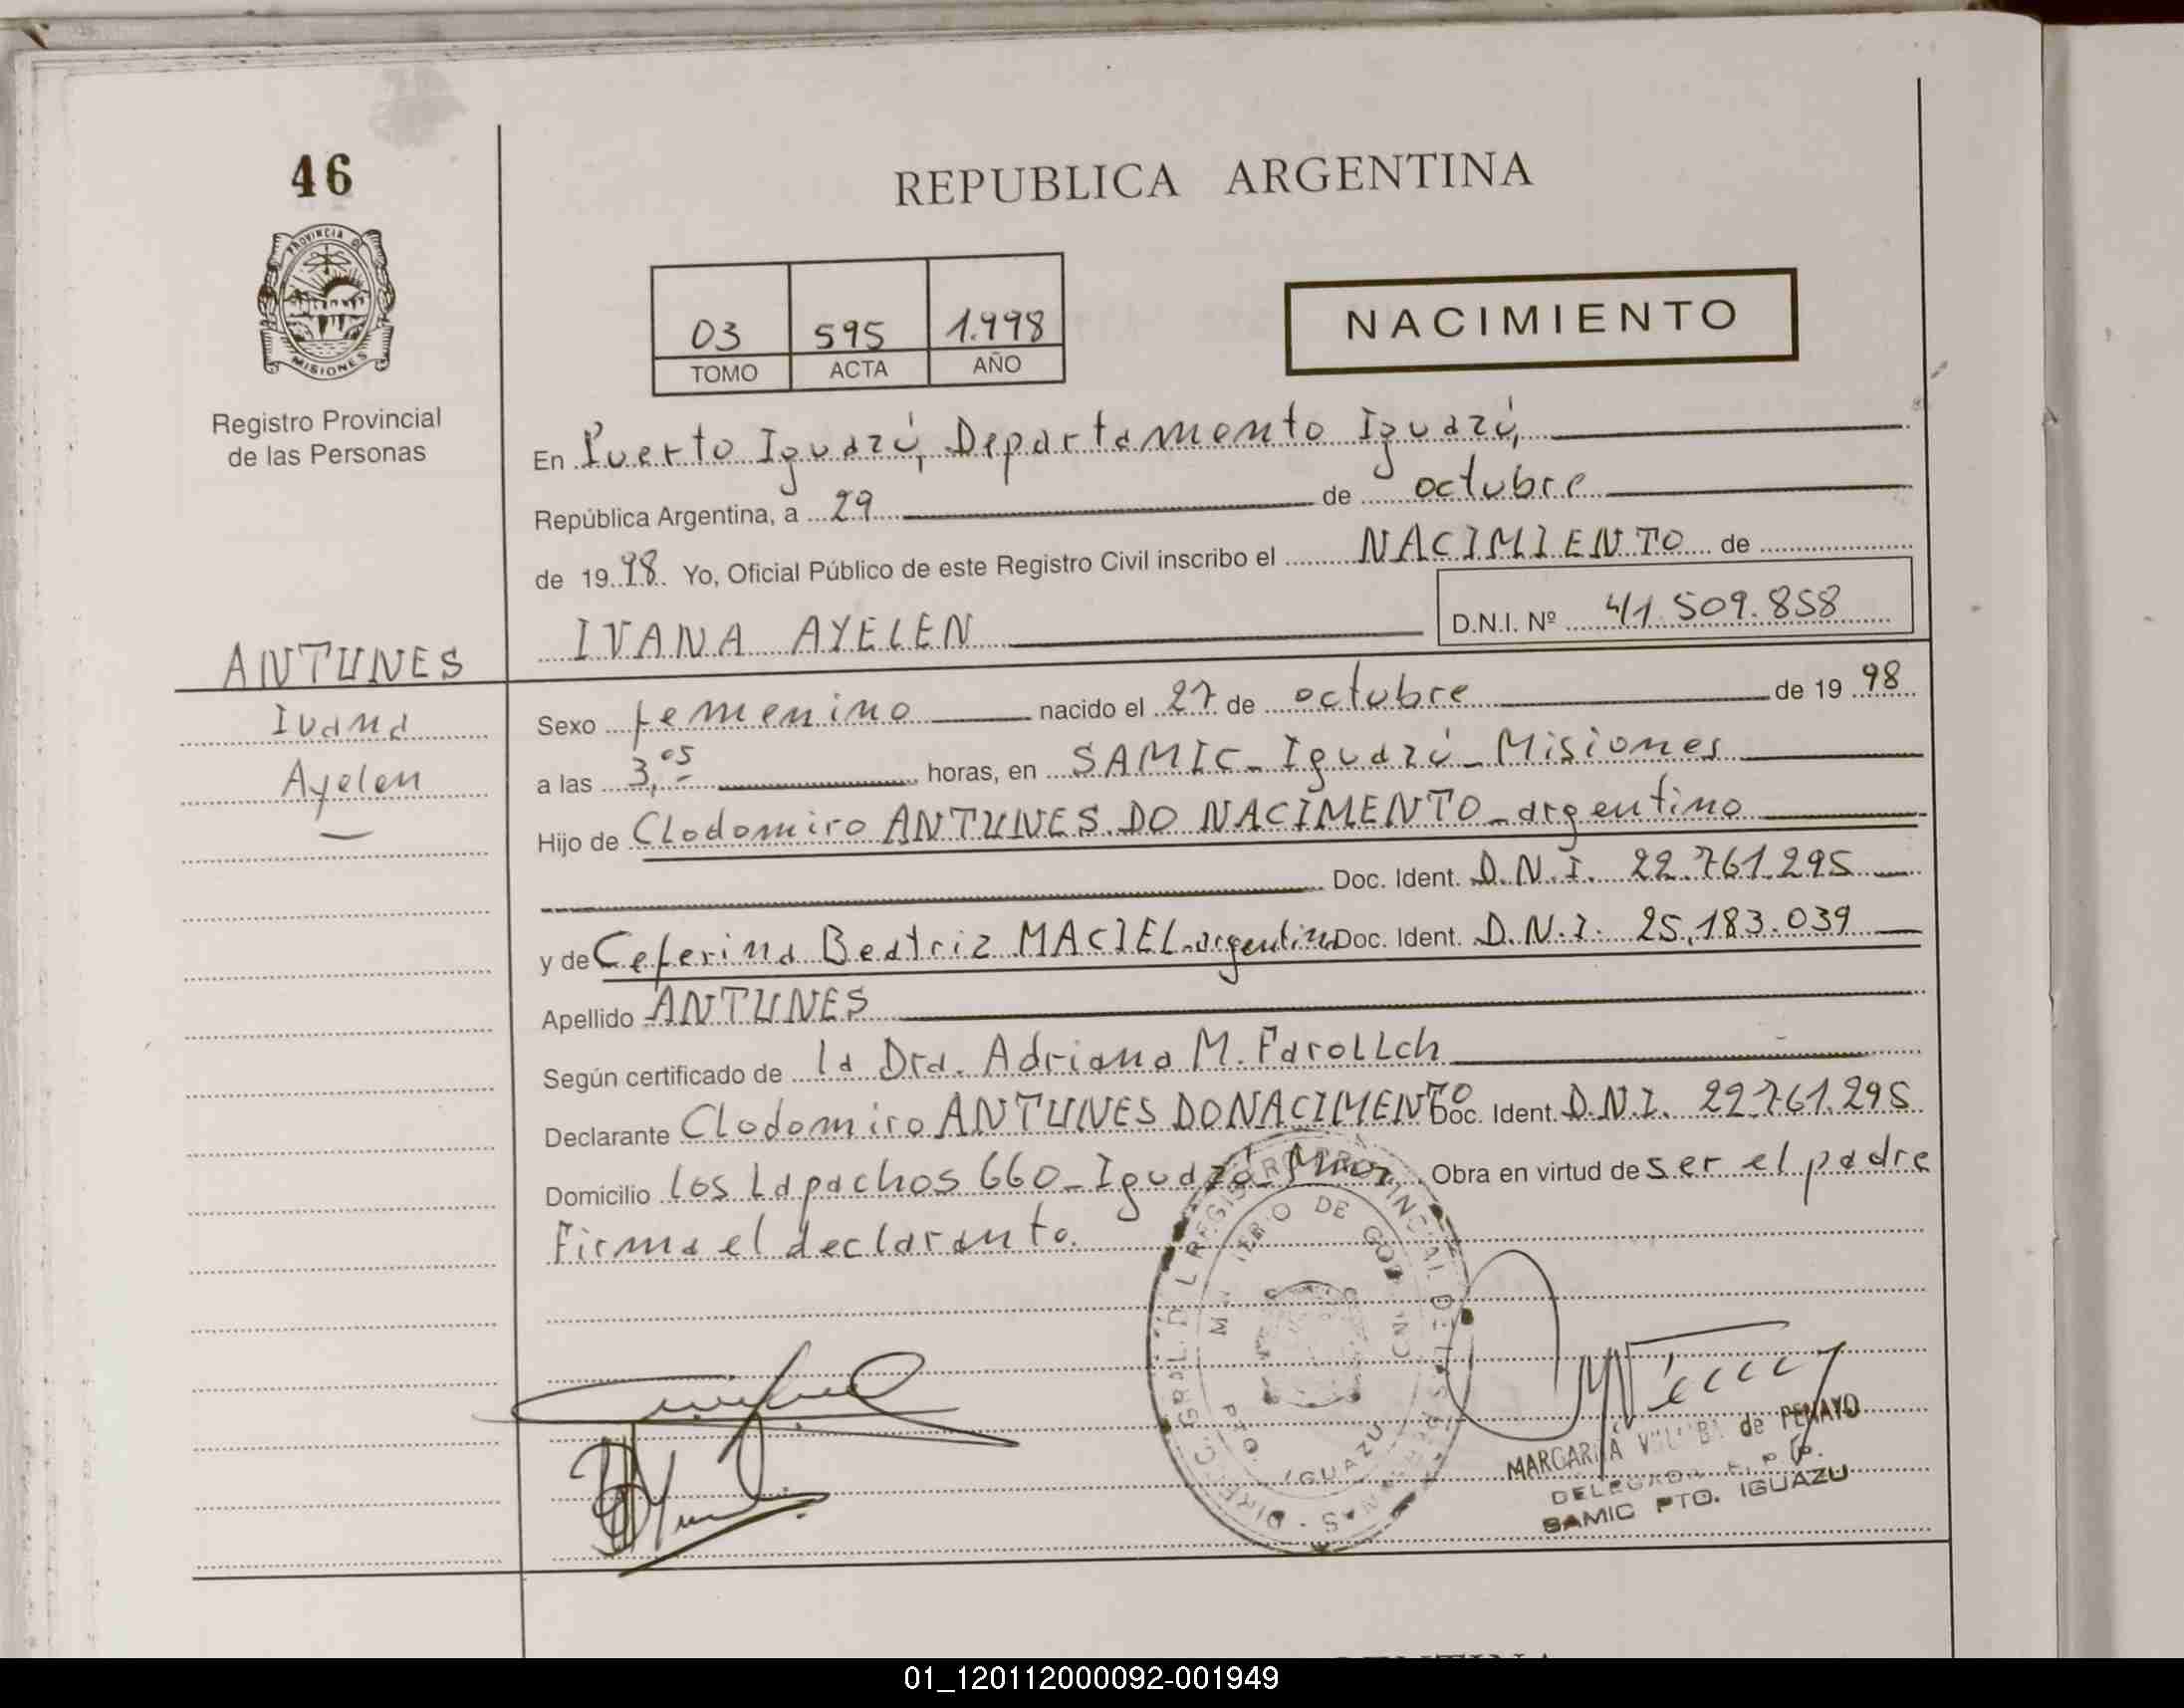 46
REPUBLICA ARGENTINA
PROVINCIA DE
MISIONES
03 595 1.998
TOMO ACTA AÑO
NACIMIENTO
Registro Provincial
de las Personas
En Puerto Iguazú, Departamento Iguazú,
República Argentina, a 29 de octubre
de 19 98 Yo, Oficial Público de este Registro Civil inscribo el NACIMIENTO de
IVANA AYELEN D.N.I. Nº 41.509.858
ANTUNES
Ivana
Ayelen
Sexo femenino nacido el 27 de octubre de 19 98
a las 3,05 horas, en SAMIC - Iguazú - Misiones
Hijo de Clodomiro ANTUNES DO NACIMENTO - argentino
Doc. Ident. D.N.I. 22.761.295
y de Ceferina Beatriz MACIEL - argentina Doc. Ident. D.N.I. 25.183.039
Apellido ANTUNES
Según certificado de la Dra. Adriana M. Farollch
Declarante Clodomiro ANTUNES DO NACIMENTO Doc. Ident. D.N.I. 22.761.295
Domicilio Los Lapachos 660 - Iguazú Obra en virtud de ser el padre
Firma el declarante.
DIREC. GRAL. DEL REGISTRO PROVINCIAL DE LAS PERSONAS
MINISTERIO DE GOBIERNO
PTO. IGUAZU
MARGARITA de PENAYO
DELEGADA R. P. P.
SAMIC PTO. IGUAZU
01_120112000092-001949